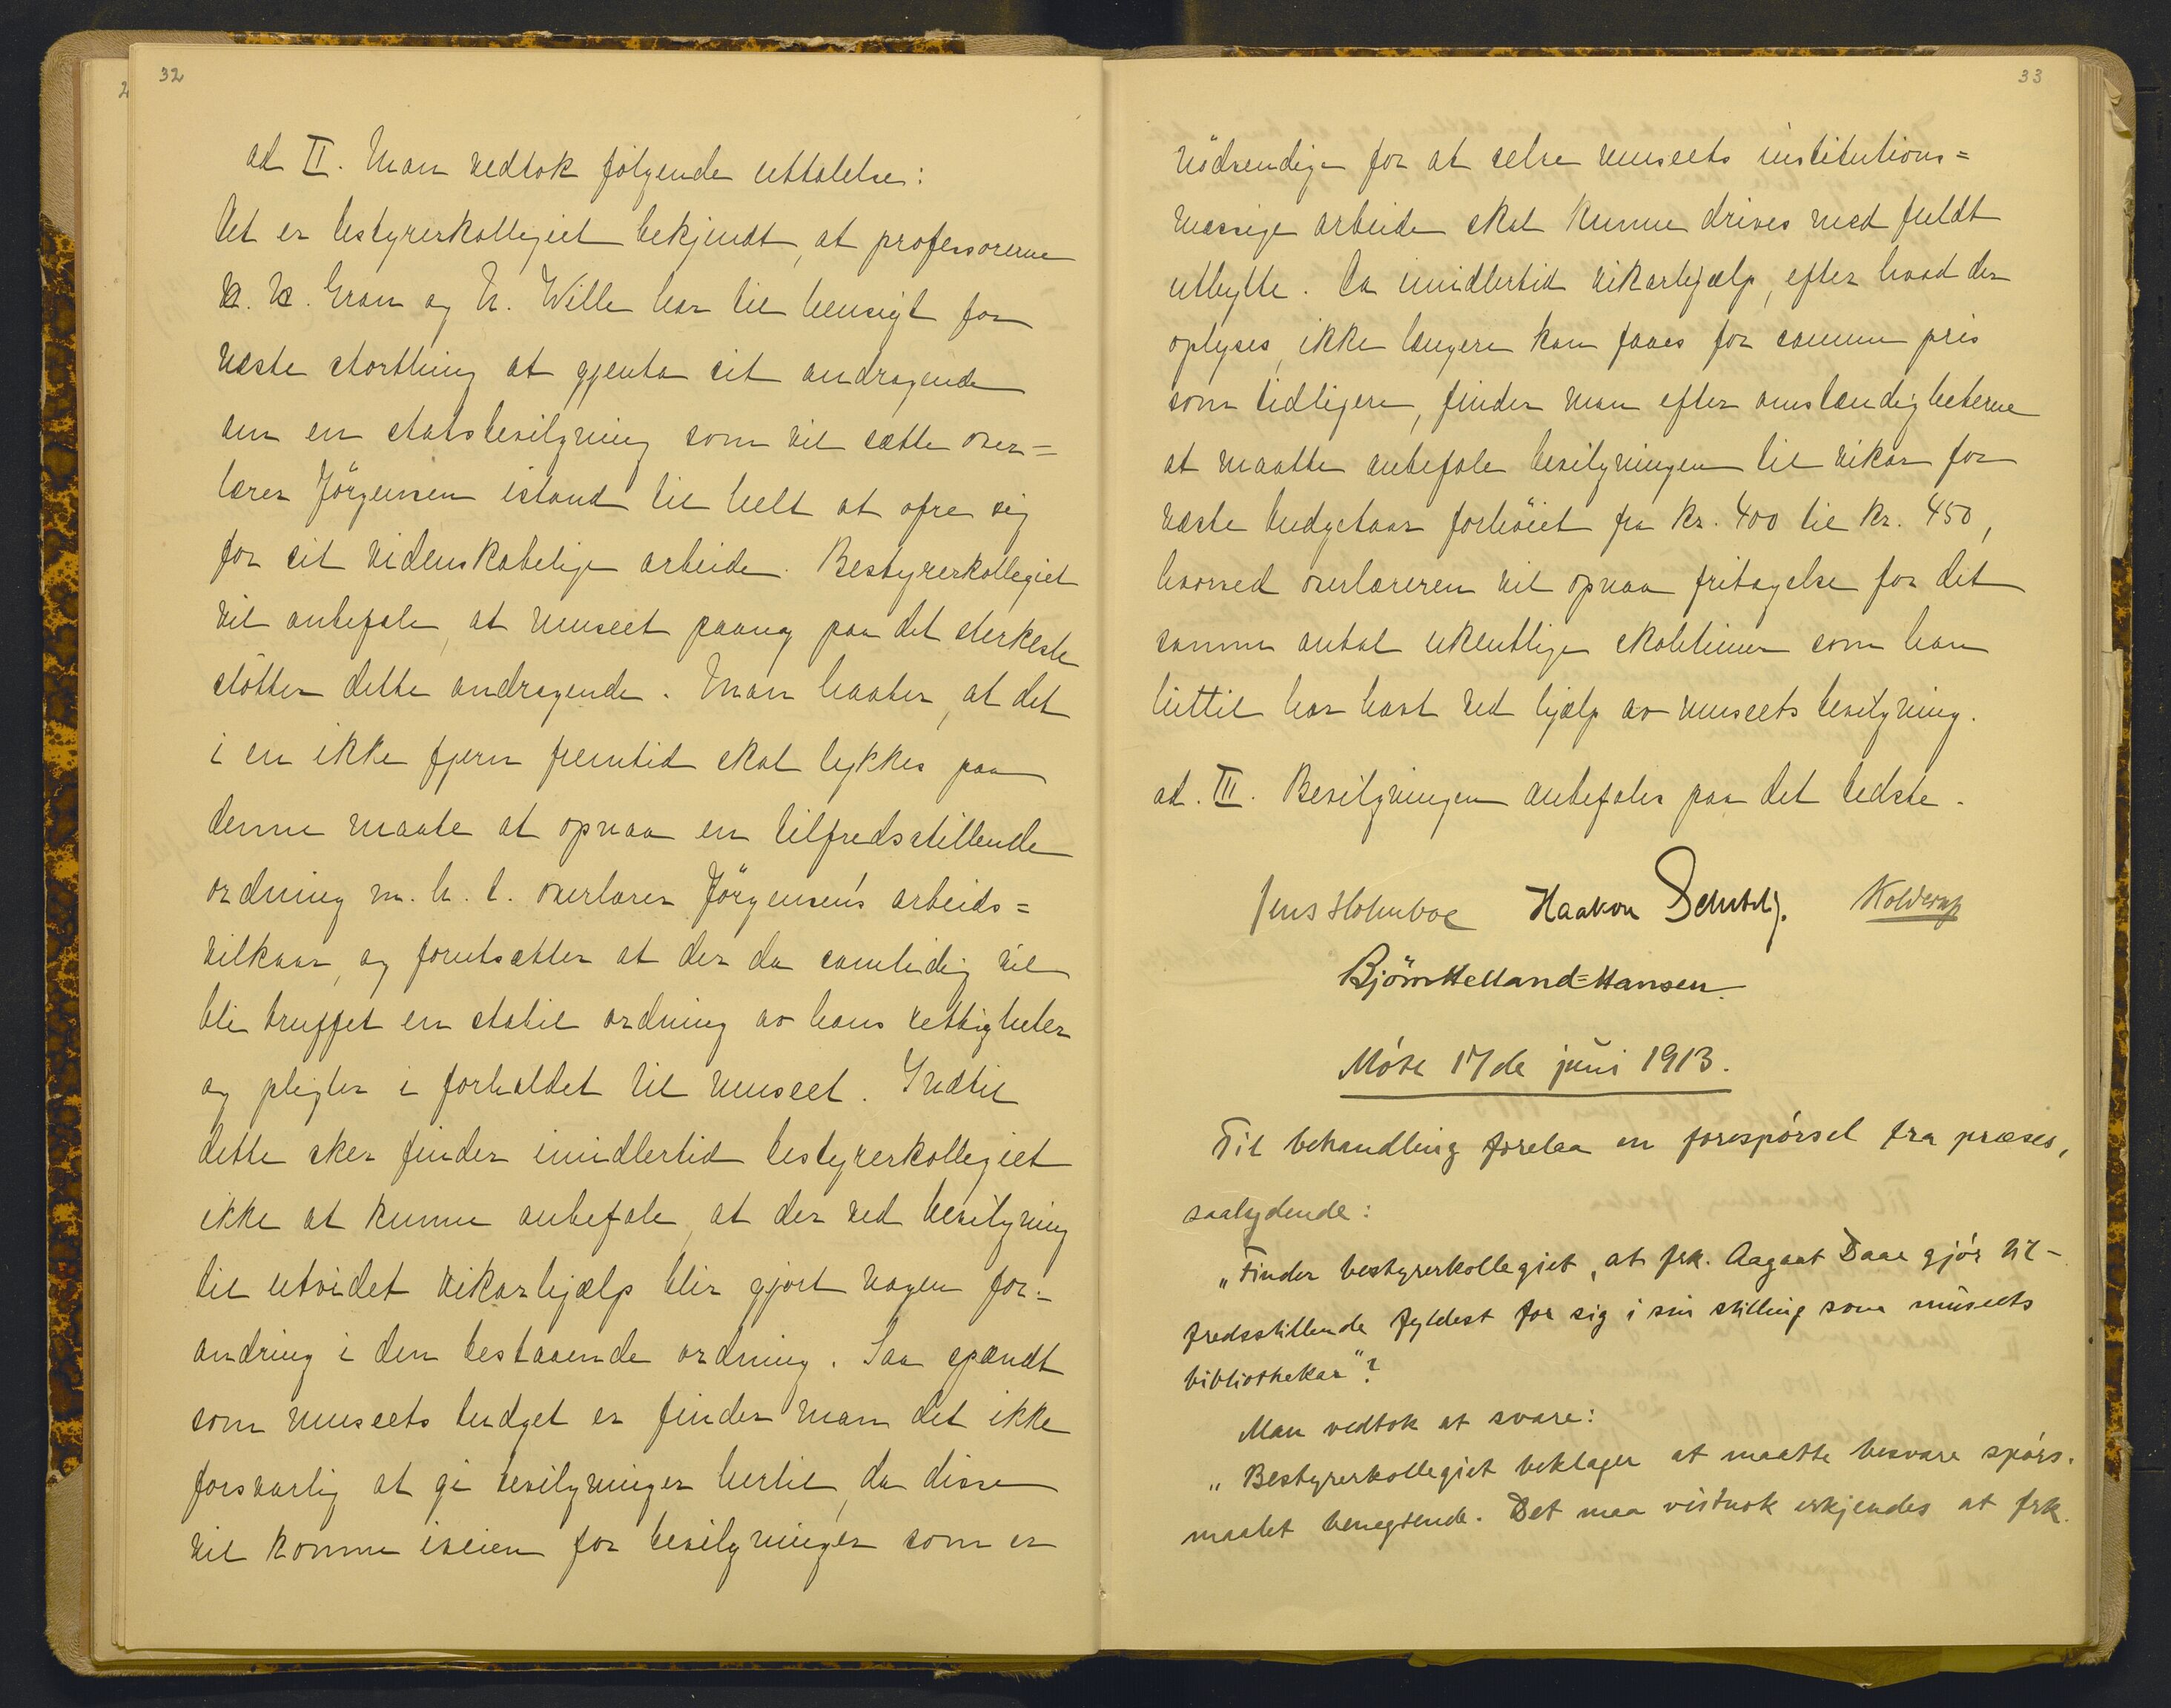 32
ad II. Man vedtok følgende uttalelse:
Det er bestyrerkollegiet bekjendt, at professorerne
H. H. Gran og N. Wille har til hensigt for
næste storthing at gjenta sit andragende
om en statsbevilgning som vil sætte over=
lærer Jörgensen istand til helt at ofre sig
for sit videnskabelige arbeide. Bestyrerkollegiet
vil anbefale, at museet paany paa det sterkeste
støtter dette andragende. Man haaber, at det
i en ikke fjern fremtid skal lykkes paa
denne maate at opnaa en tilfredsstillende
ordning m. h. t. overlærer Jörgensen's arbeids=
vilkaar, og forutsætter at der da samtidig vil
bli truffet en stabil ordning av hans rettigheter
og pligter i forholdet til museet. Indtil
dette sker finder imidlertid bestyrerkollegiet
ikke at kunne anbefale, at der ved bevilgning
til utvidet vikarhjælp blir gjort nogen for=
andring i den bestaaende ordning. Saa spændt
som museets budget er finder man det ikke
forsvarlig at gi bevilgninger hertil, da disse
vil komme iveien for bevilgninger som er
33
nödvendige for at selve museets institutions=
mæssige arbeide skal kunne drives med fuldt
utbytte. Da imidlertid vikarhjælp, efter hvad der
oplyses, ikke længere kan faaes for samme pris
som tidligere, finder man efter omstændigheterne
at maatte anbefale bevilgningen til vikar for
næste budgetaar forhöiet fra kr. 400 til kr. 450,
hvorved overlæreren vil opnaa fritagelse for det
samme antal ukentlige skoletimer som han
hittil har havt ved hjælp av museets bevilgning.
ad. III. Bevilgningen anbefales paa det bedste.
Jens Holmboe Haakon Schetelig. Kolderup
Björn Helland-Hansen.
Möte 17de juni 1913.
Til behandling forelaa en forespørsel fra præses,
saalydende:
„Finder bestyrerkollegiet, at frk. Aagaat Daae gjør til-
fredsstillende fyldest for sig i sin stilling som museets
bibliothekar"?
Man vedtok at svare:
„Bestyrerkollegiet beklager at maatte besvare spørs-
maalet benegtende. Det maa vistnok erkjendes at frk.